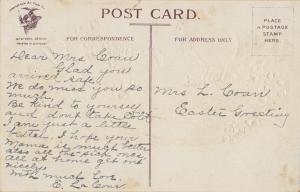 POST CARD.
FOR CORRESPONDENCE
FOR ADDRESS ONLY
PLACE
A POSTAGE
STAMP
HERE
Dear Mrs Coan
Glad you
arrived safe.
We do miss you so
much.
Be kind to yourself
and dont take cold
I am just a little
better. I hope your
Mama is much better
also all the sick ones
all at home get on
nicely.
With much love.
E. La
Mrs L. Coan
Easter Greeting